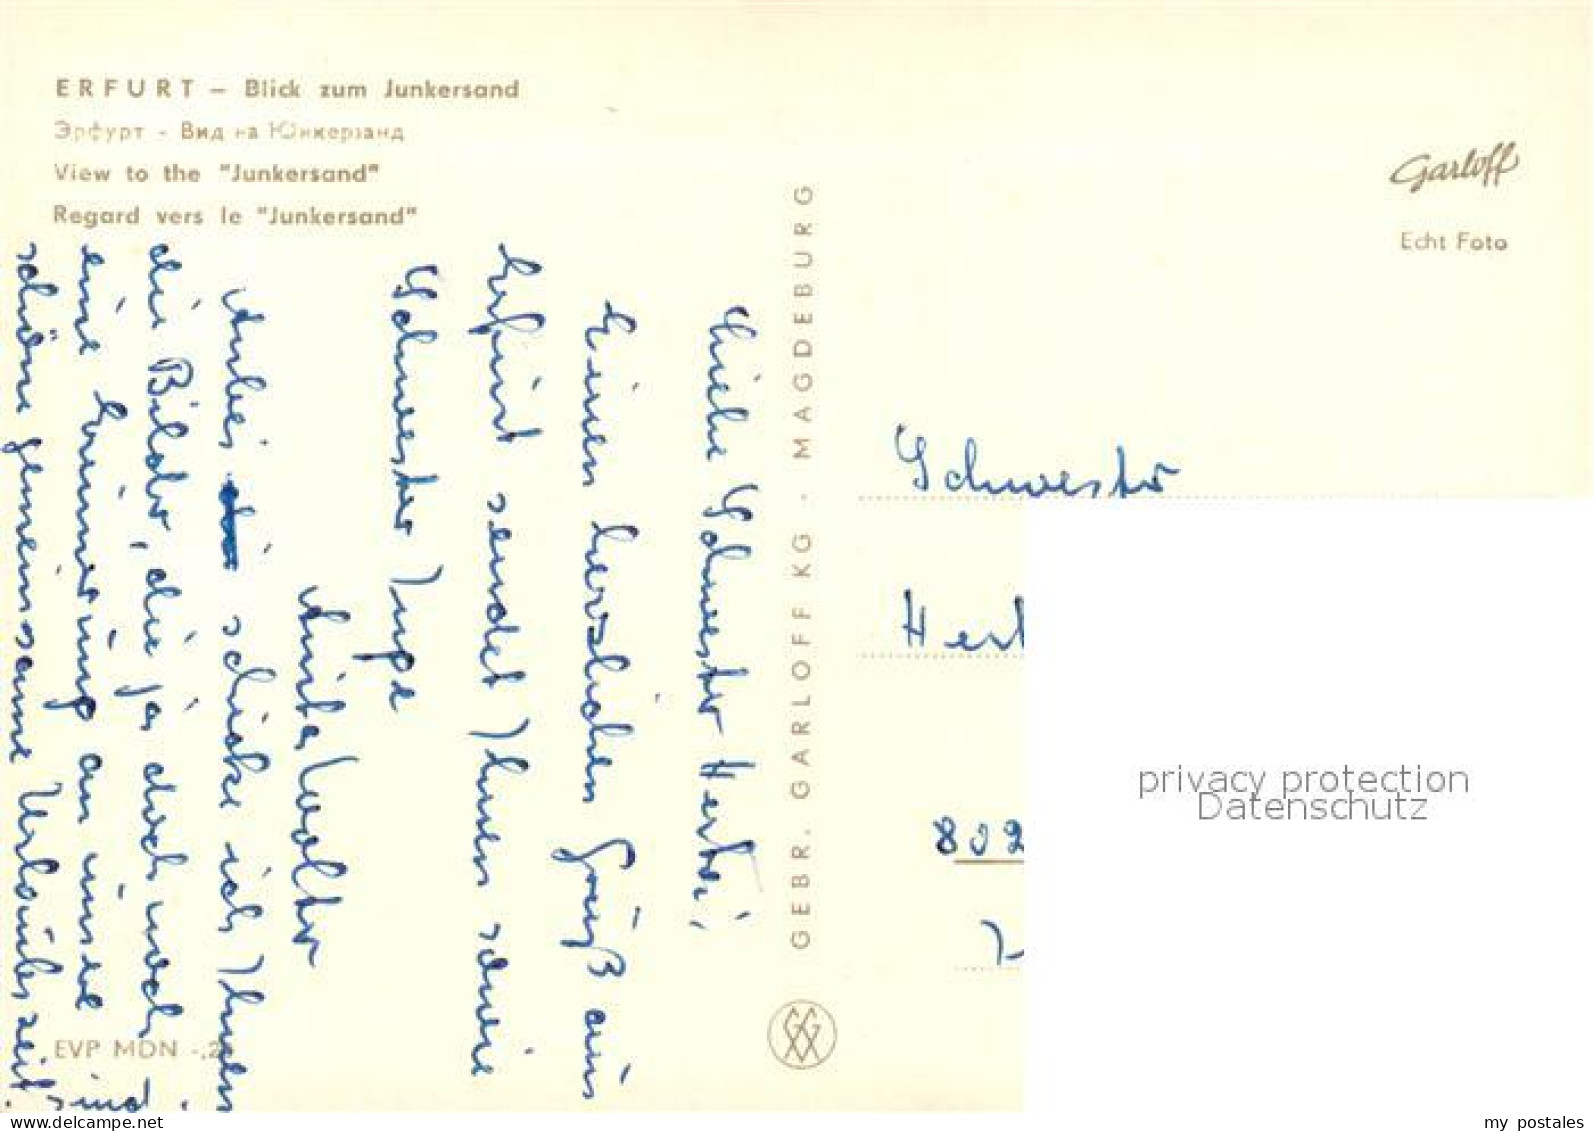 ERFURT – Blick zum Junkersand
Эрфурт - Вид на Юнкерзанд
View to the "Junkersand"
Regard vers le "Junkersand"
Liebe Schwester Herta,
Einen herzlichen Gruß aus
Erfurt sendet Ihnen sowie
Schwester Inge
Anita Walter
Anbei schicke ich Ihnen
die Bilder, die ja doch noch
eine Erinnerung an unsere
schöne gemeinsame Urlaubszeit
sind.
EVP MDN -,2
GEBR. GARLOFF KG · MAGDEBURG
Garloff
Echt Foto
Schwester
Her
802
privacy protection
Datenschutz
delcampe.net
my postales